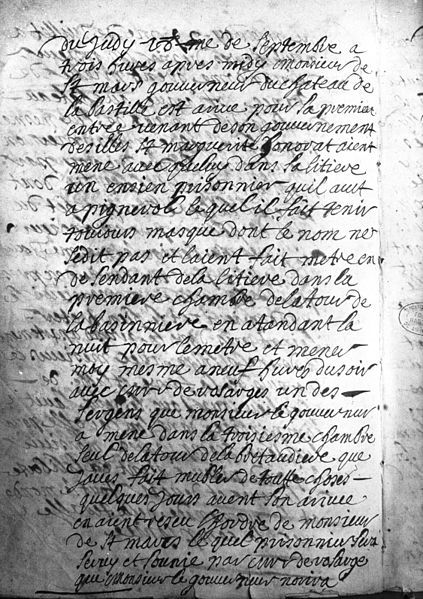 Du judy 18me de septembre a
trois hures apres midy monsieur de
st mars gouverneur du chateau de
la bastille est arive pour sa premiere
entree venant de son gouvernement
desilles st marguerite honorat aient
mene avec queluy dans sa litiere
un ensien prisonnier quil avet
a pignerol lequel il fait tenir
toujours masque dont le nom ne
sedit pas et laient fait metre en
de sendant dela litiere dans la
premiere chambre delatour de
la basinniere en atendant la
nuit pour lemetre et mener
moy mesme a neuf hures du soir
avec de rosarges un des
sergens que monsieur le gouverneur
a mene dans la troisiesme chambre
seul delatour de la bretaudiere que
javes fait mubler de toutte choses
quelques jours avent son arivee
en aient reseu lhordre de monsieur
de st mars lequel prisonnier sera
servy et sounie par de rosarge
que monsieur le gouverneur norira